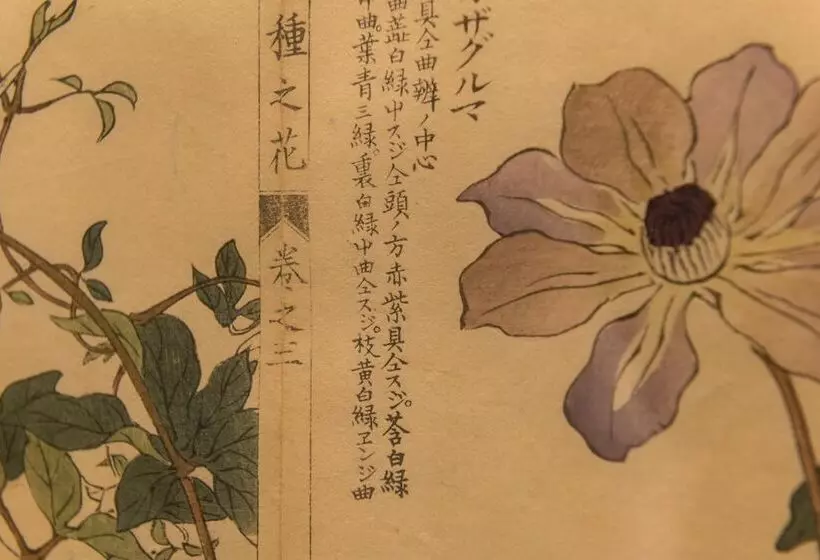 ザグルマ
具仝曲辨ノ中心
曲蕋白緑中スジ仝頭ノ方赤紫具仝スジ。莟白緑
中曲。葉青三緑。裏白緑中曲仝スジ。枝黄白緑ヱンジ曲
種之花
巻之三